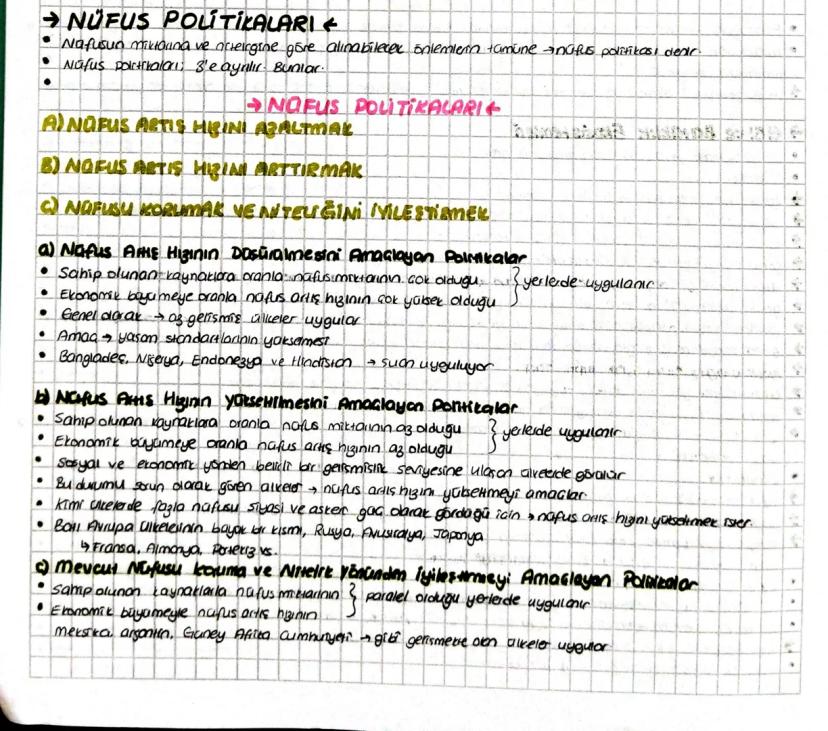 → NÜFUS POLİTİKALARI ←
• Nüfusun miktarına ve niteliğine göre alınabilecek önlemlerin tümüne → nüfus politikası denir.
• Nüfus politikaları; 3'e ayrılır. Bunlar.
•
→ NÜFUS POLİTİKALARI ←
A) NÜFUS ARTIŞ HIZINI AZALTMAK
B) NÜFUS ARTIŞ HIZINI ARTTIRMAK
C) NÜFUSU KORUMAK VE NİTELİĞİNİ İYİLEŞTİRMEK
a) Nüfus Artış Hızının Düşürülmesini Amaçlayan Politikalar
• Sahip olunan kaynaklara oranla nüfus miktarının çok olduğu } yerlerde uygulanır
• Ekonomik büyümeye oranla nüfus artış hızının çok yüksek olduğu
• Genel olarak → az gelişmiş ülkeler uygular
• Amaç → yaşam standartlarının yükselmesi
• Bangladeş, Nijerya, Endonezya ve Hindistan → şuan uyguluyor
b) Nüfus Artış Hızının Yükseltilmesini Amaçlayan Politikalar
• Sahip olunan kaynaklara oranla nüfus miktarının az olduğu } yerlerde uygulanır
• Ekonomik büyümeye oranla nüfus artış hızının az olduğu
• Sosyal ve ekonomik yönden belirli bir gelişmişlik seviyesine ulaşan ülkelerde görülür
• Bu durumu sorun olarak gören ülkeler → nüfus artış hızını yükseltmeyi amaçlar
• Kimi ülkelerde fazla nüfusu siyasi ve askeri güç olarak gördüğü için → nüfus artış hızını yükseltmek ister
• Batı Avrupa ülkelerinin büyük bir kısmı, Rusya, Avustralya, Japonya
↳ Fransa, Almanya, Portekiz vs.
c) Mevcut Nüfusu Koruma ve Nitelik Yönünden İyileştirmeyi Amaçlayan Politikalar
• Sahip olunan kaynaklarla nüfus miktarının } paralel olduğu yerlerde uygulanır
• Ekonomik büyümeyle nüfus artış hızının
meksika, arjantin, Güney Afrika Cumhuriyeti → gibi gelişmekte olan ülkeler uygular